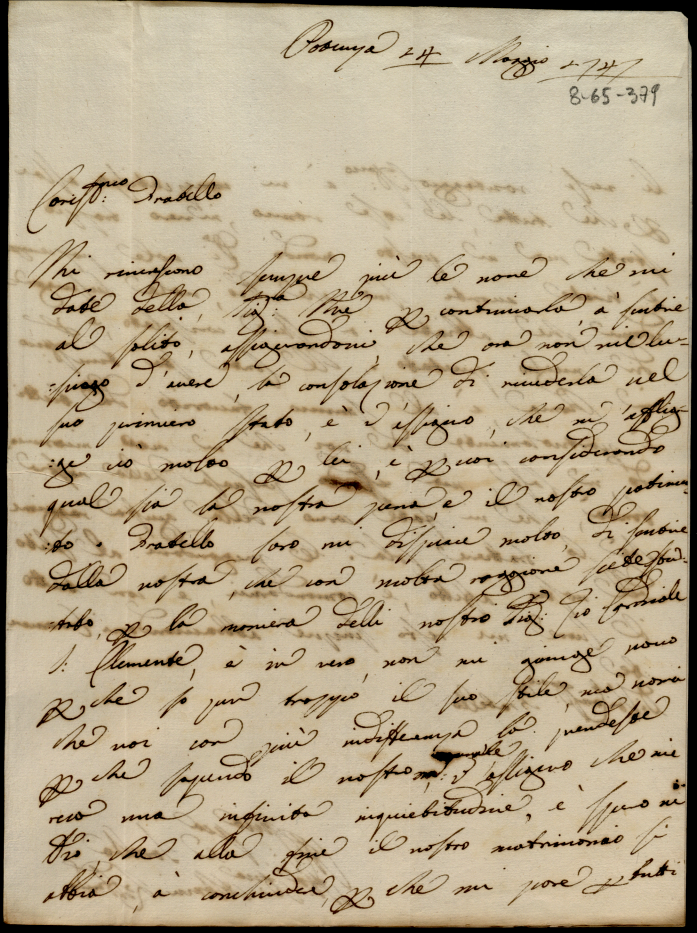 24 Maggio 1747
8-65-379
Fratello
Mi rincrescono sempre più le nove che mi
date della Sig:ra M͞re per continuarla à sentire
al solito, assicurandovi, che ora non mi lu=
:singo d'avere, la consolazione di rivederla nel
suo primiero stato, è v'assicuro, che m'afflig=
:ge ciò molto per lei, è per voi considerando
qual sia la vostra pena, e il vostro patimen=
:to. Fratello caro mi dispiace molto, di sentire
dalla vostra, che con molta raggione siete scon=
per la maniera delli nostro Sig: Zio
S: Clemente, è in vero, non mi giunge novo
per che so pur troppo il suo stile, ma vorrei
che voi con più indifferenza la prendeste
per che sapendo il vostro naturale v'assicuro che mi
reca una infinita inquietitudine, è spero in
Dio, che alla fine il nostro matrimonio si
abbia, à conchiudere, per che mi pare per tutti